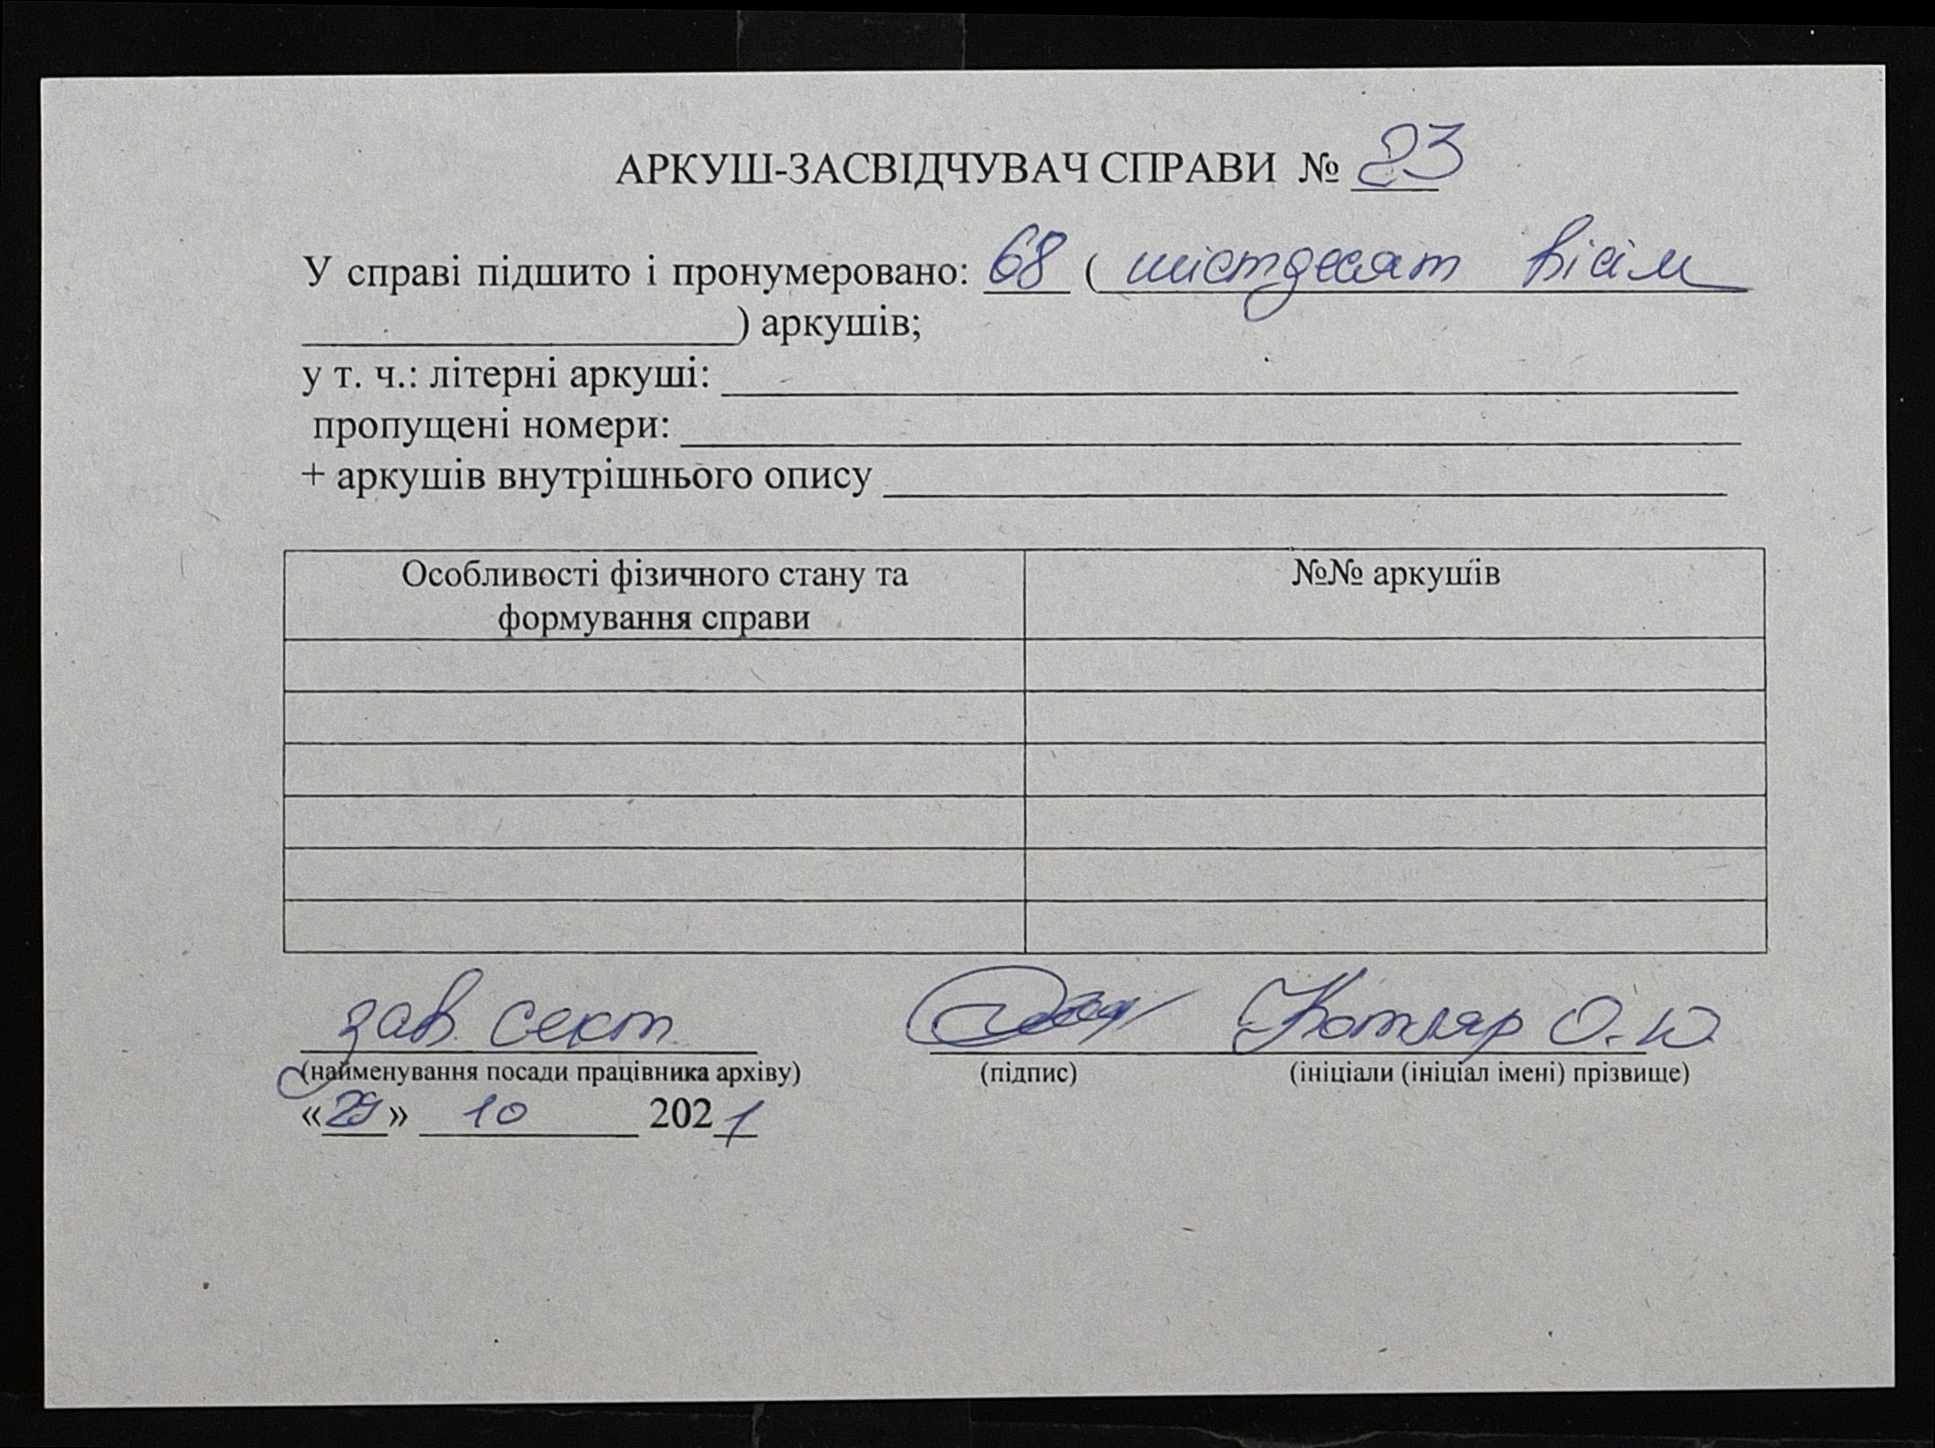 АРКУШ-ЗАСВІДЧУВАЧ СПРАВИ № 23
У справі підшито і пронумеровано: 68 ( шістдесят вісім
) аркушів;
у т. ч.: літерні аркуші:
пропущені номери:
+ аркушів внутрішнього опису
Особливості фізичного стану та
формування справи
№№ аркушів
зав. сект. Котляр О. Ю
(найменування посади працівника архіву) (підпис) (ініціали (ініціал імені) прізвище)
«29» 10 2021